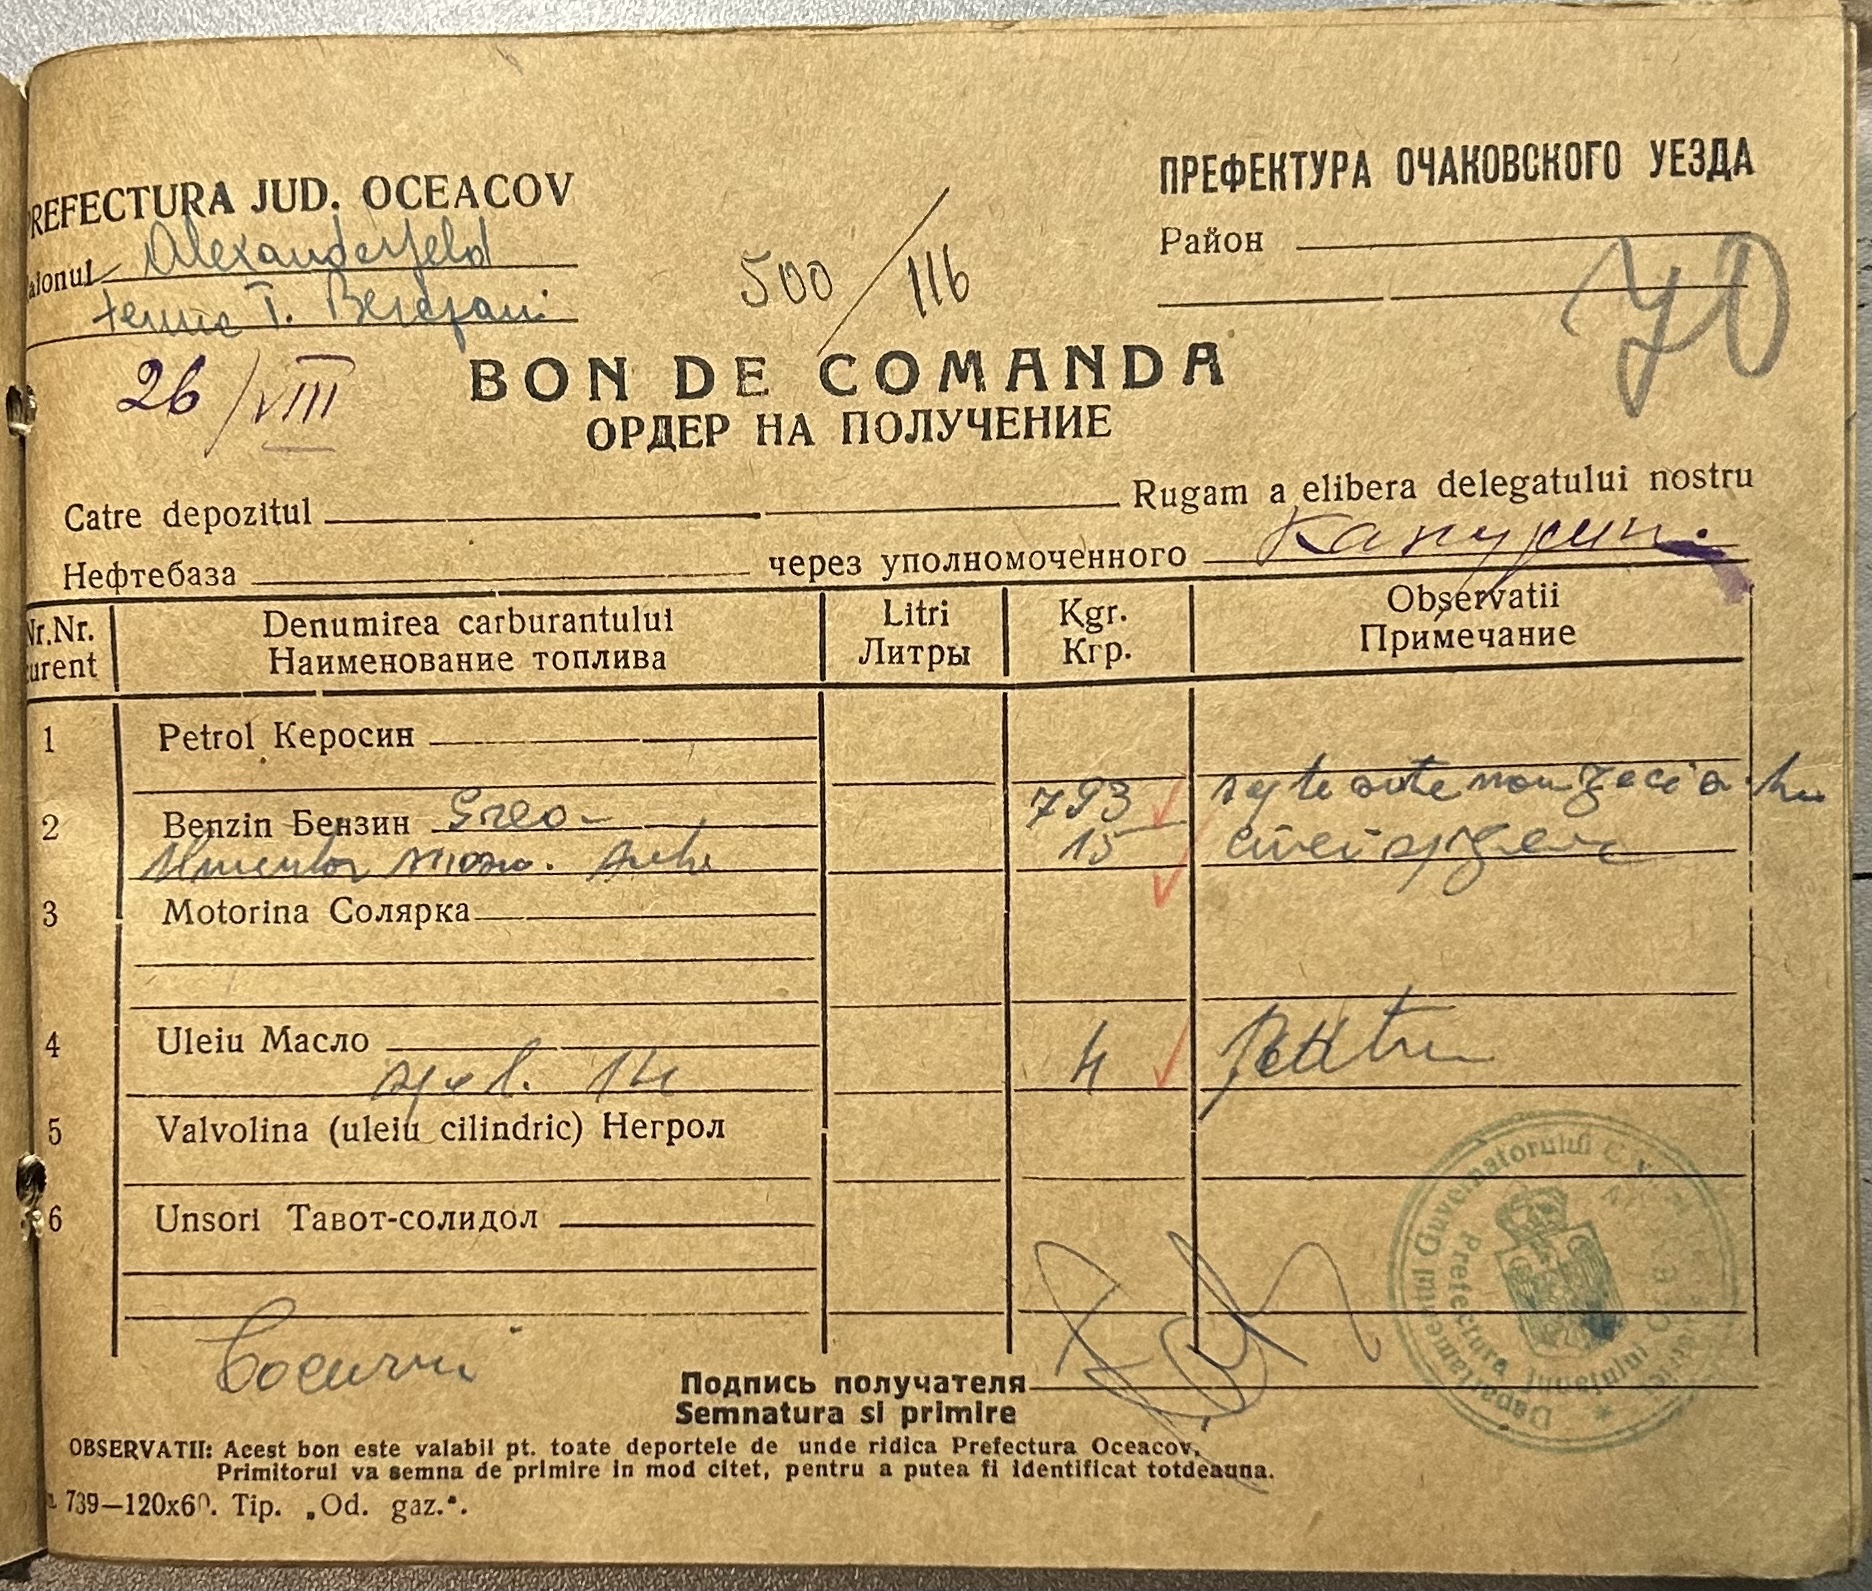 PREFECTURA JUD. OCEACOV
ПРЕФЕКТУРА ОЧАКОВСКОГО УЕЗДА
aionul Alexanderfeld
Район
T.
500/116
70
26/VIII
BON DE COMANDA
ОРДЕР НА ПОЛУЧЕНИЕ
Catre depozitul Rugam a elibera delegatului nostru
Нефтебаза через уполномоченного
Nr.Nr. curent Denumirea carburantului Litri Kgr. Observatii
Наименование топлива Литры Кгр. Примечание
1 Petrol Керосин
2 Benzin Бензин 793 septe sute
15
3 Motorina Солярка
4 Uleiu Масло
4 patru
5 Valvolina (uleiu cilindric) Негрол
6 Unsori Тавот-солидол
Подпись получателя
Semnatura si primire
Guvernatorului
Prefectura Judetului
OBSERVATII: Acest bon este valabil pt. toate deportele de unde ridica Prefectura Oceacov.
Primitorul va semna de primire in mod citet, pentru a putea fi identificat totdeauna.
739—120x60. Tip. „Od. gaz.".